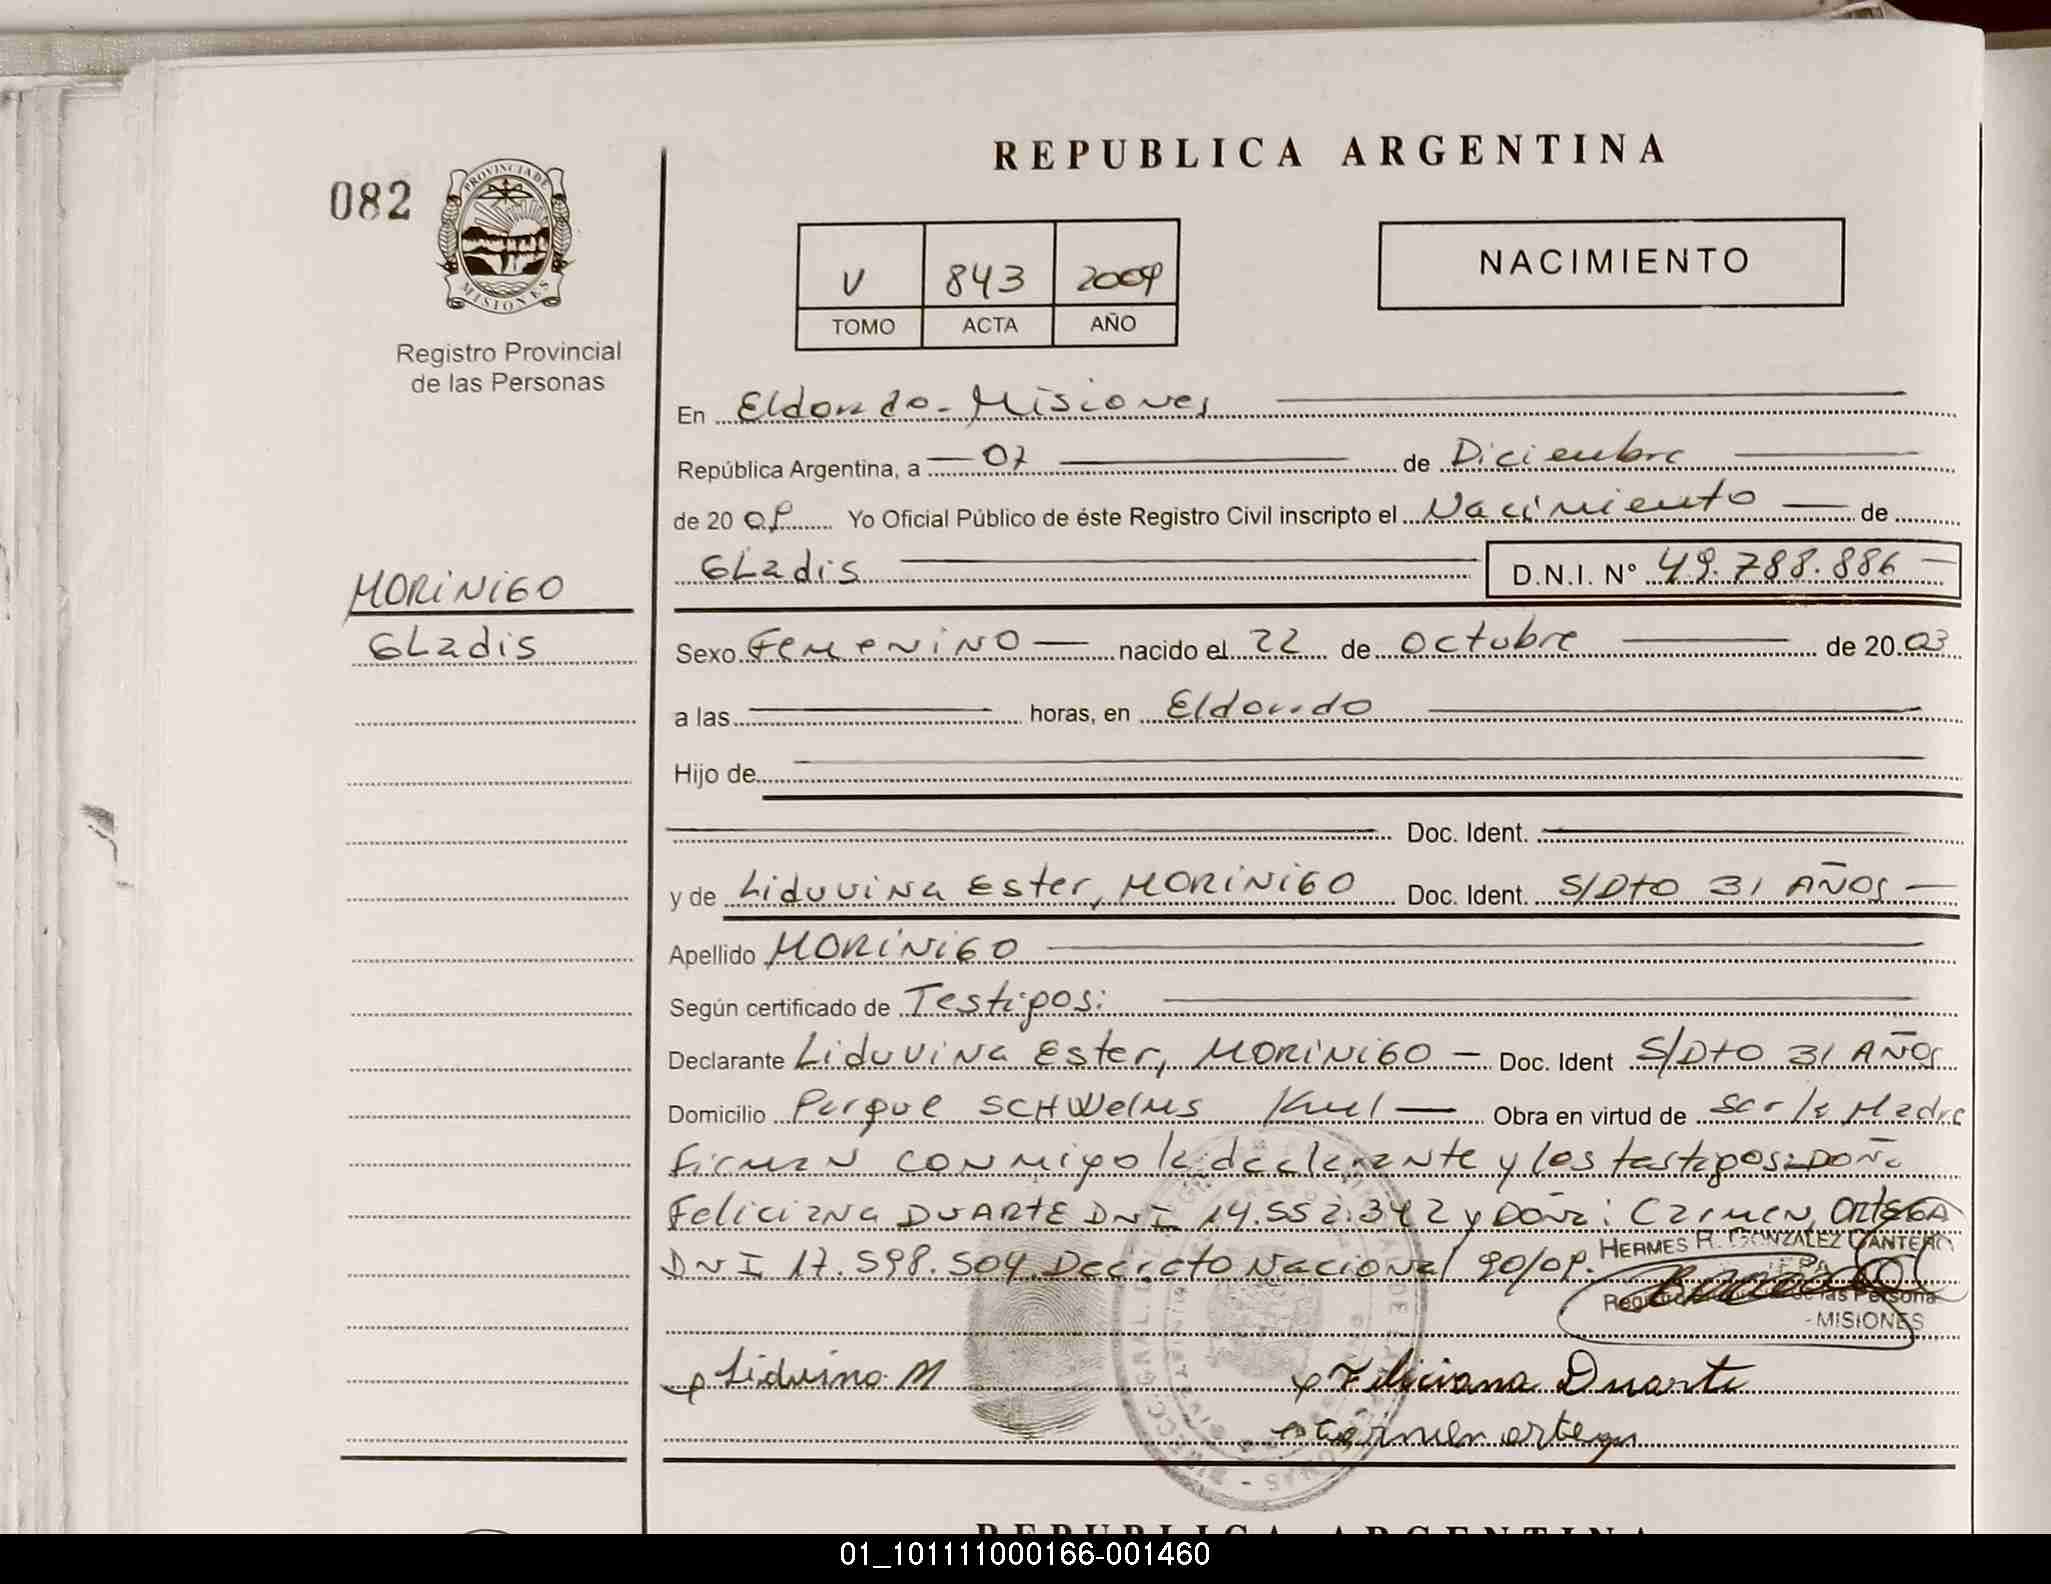 REPUBLICA ARGENTINA
082
PROVINCIA DE
MISIONES
Registro Provincial
de las Personas
V 843 2009
TOMO ACTA AÑO
NACIMIENTO
En Eldorado - Misiones
República Argentina, a 07 de Diciembre
de 20 09 Yo Oficial Público de éste Registro Civil inscripto el Nacimiento de
Gladis D.N.I. Nº 49.788.886
MORINIGO
Gladis
Sexo Femenino nacido el 22 de Octubre de 20 03
a las horas, en Eldorado
Hijo de
Doc. Ident.
y de Liduvina Ester, MORINIGO Doc. Ident. S/Dto 31 AÑOS
Apellido MORINIGO
Según certificado de Testigos:
Declarante Liduvina Ester, MORINIGO Doc. Ident S/Dto 31 AÑOS
Domicilio Parque SCHWelms Obra en virtud de ser la Madre
Firman conmigo la declarante y los testigos: Doña
Feliciana DUARTE DNI 14.552.342 y Doña: Carmen, ORTEGA
DNI 17.598.504 Decreto Nacional 90/09.
HERMES R. GONZALEZ CANTERO
de las Persona
- MISIONES
Liduvina M Feliciana Duarte
Carmen ortega
REPUBLICA ARGENTINA
01_101111000166-001460